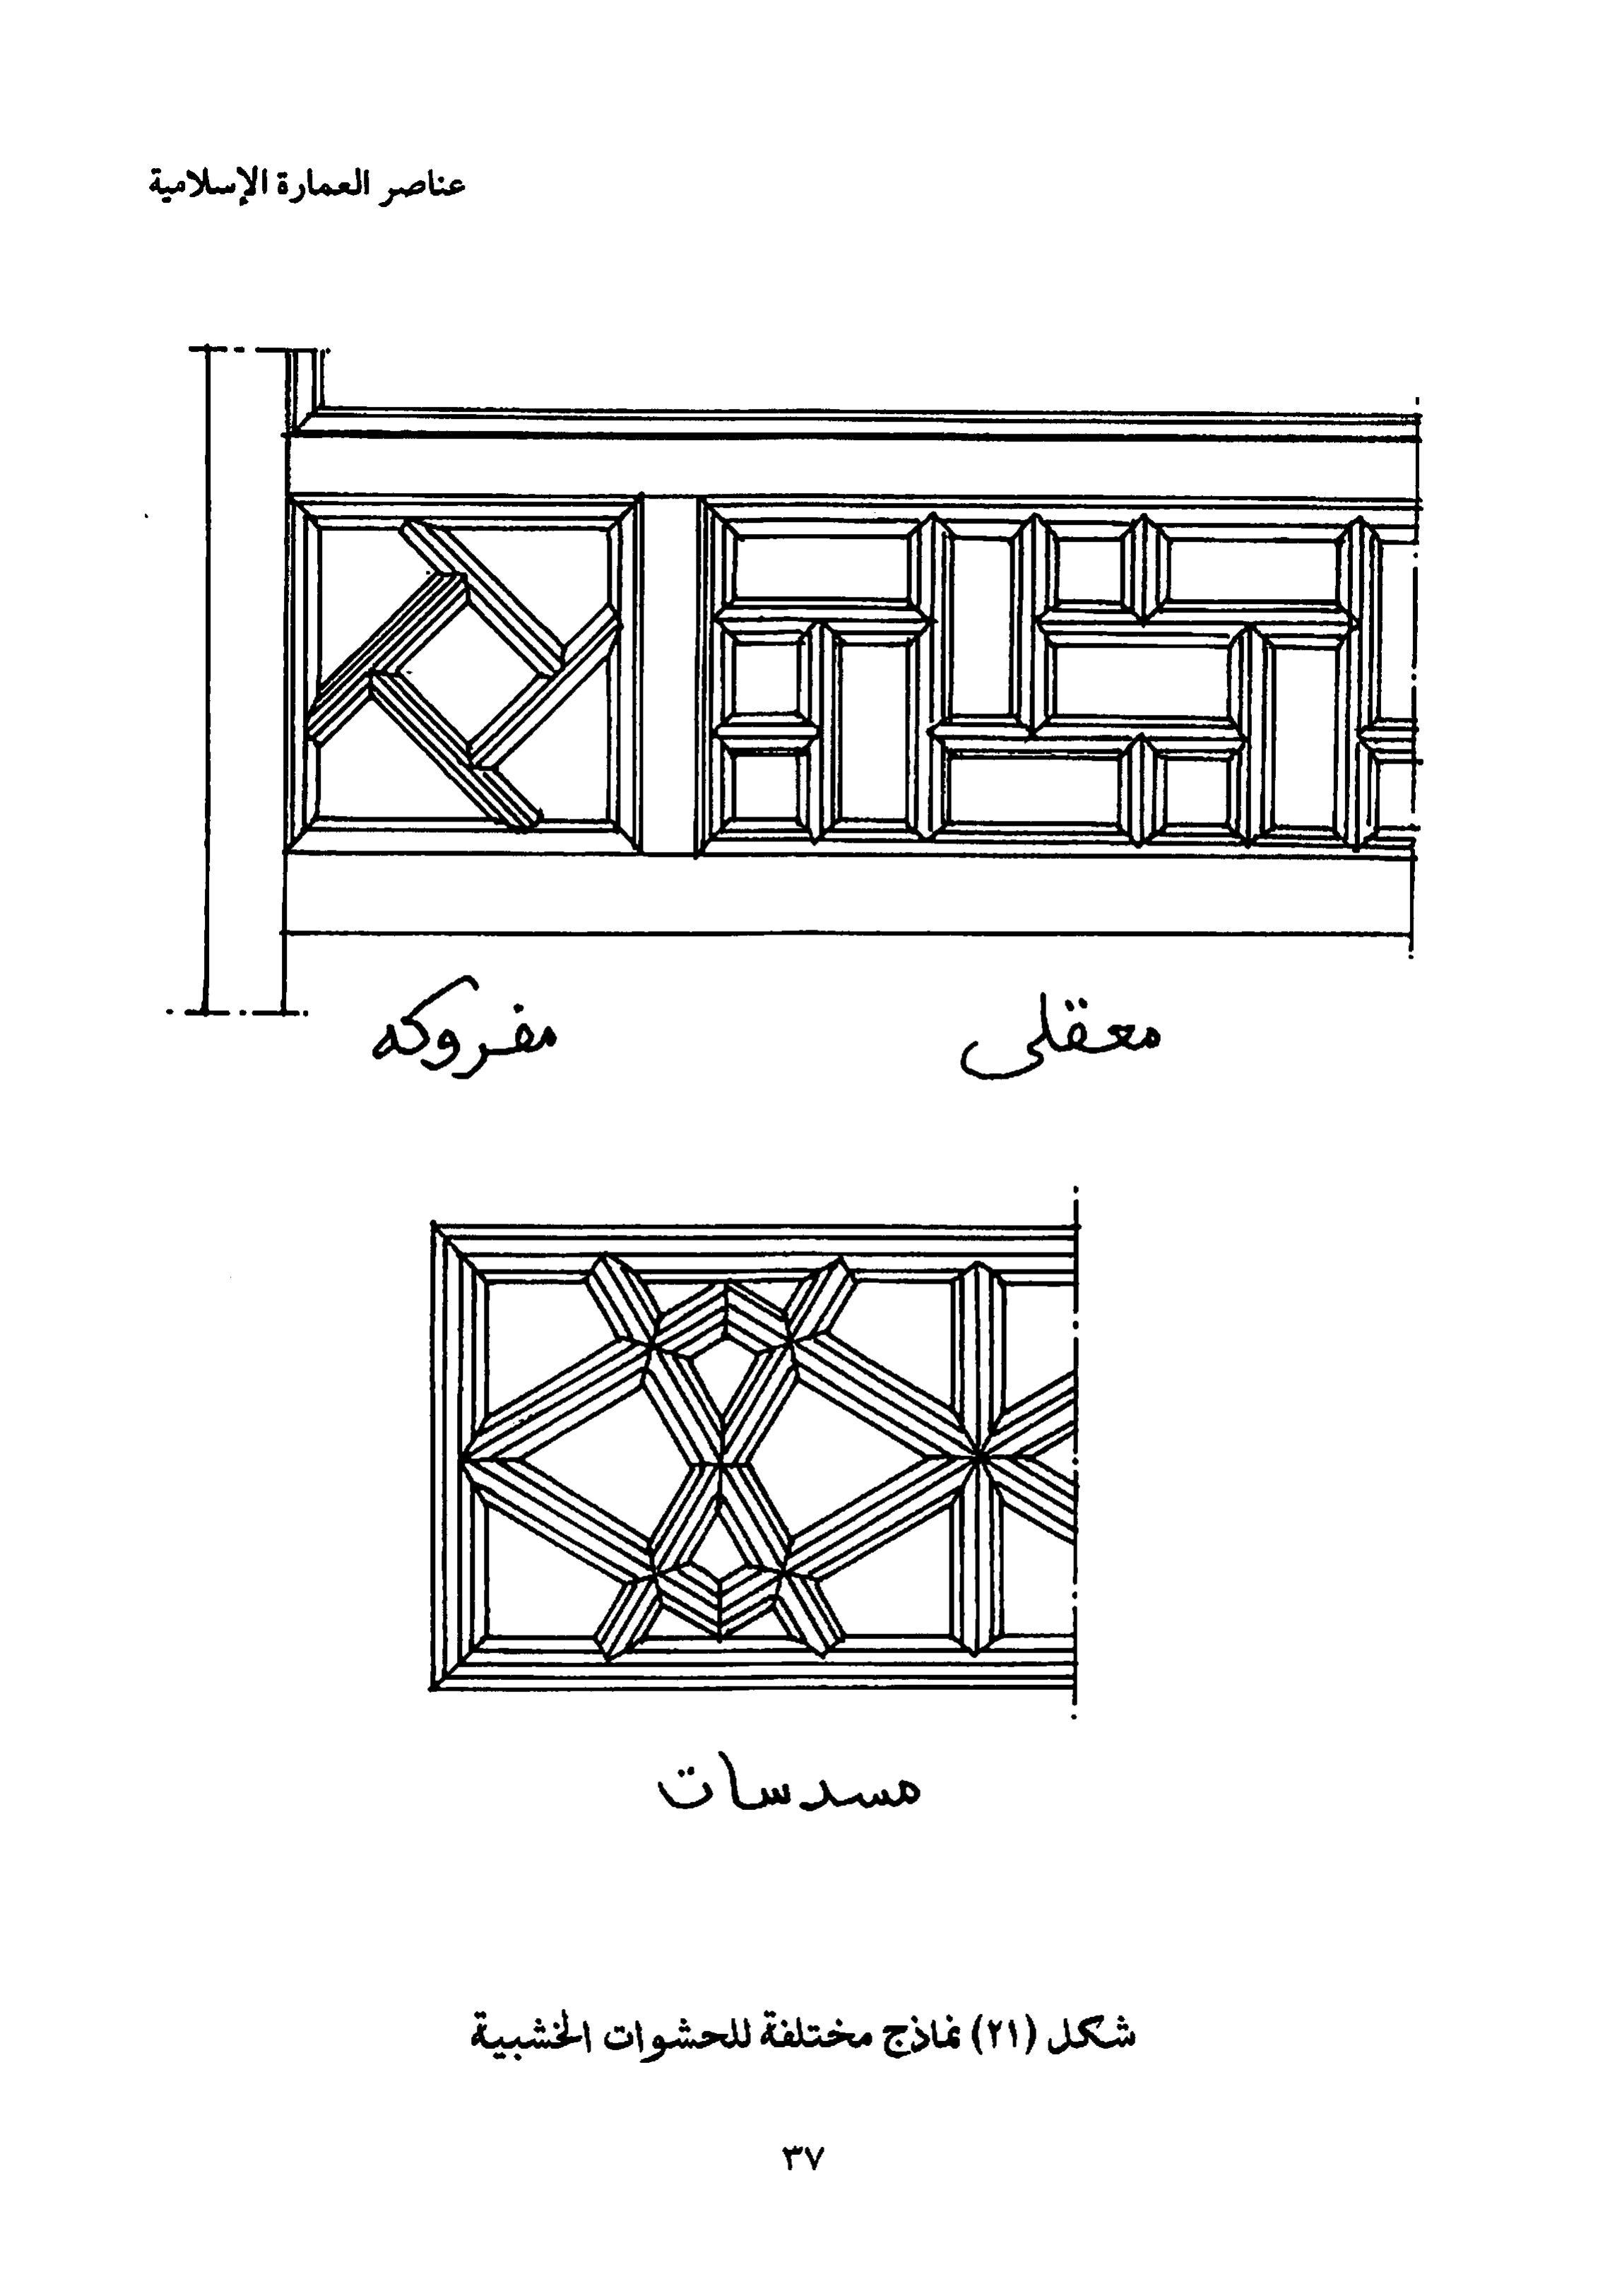 عناصر العمارة الإسلامية
معقلى
مفروكه
مسدسات
شكل (٢١) نماذج مختلفة للحشوات الخشبية
٣٧